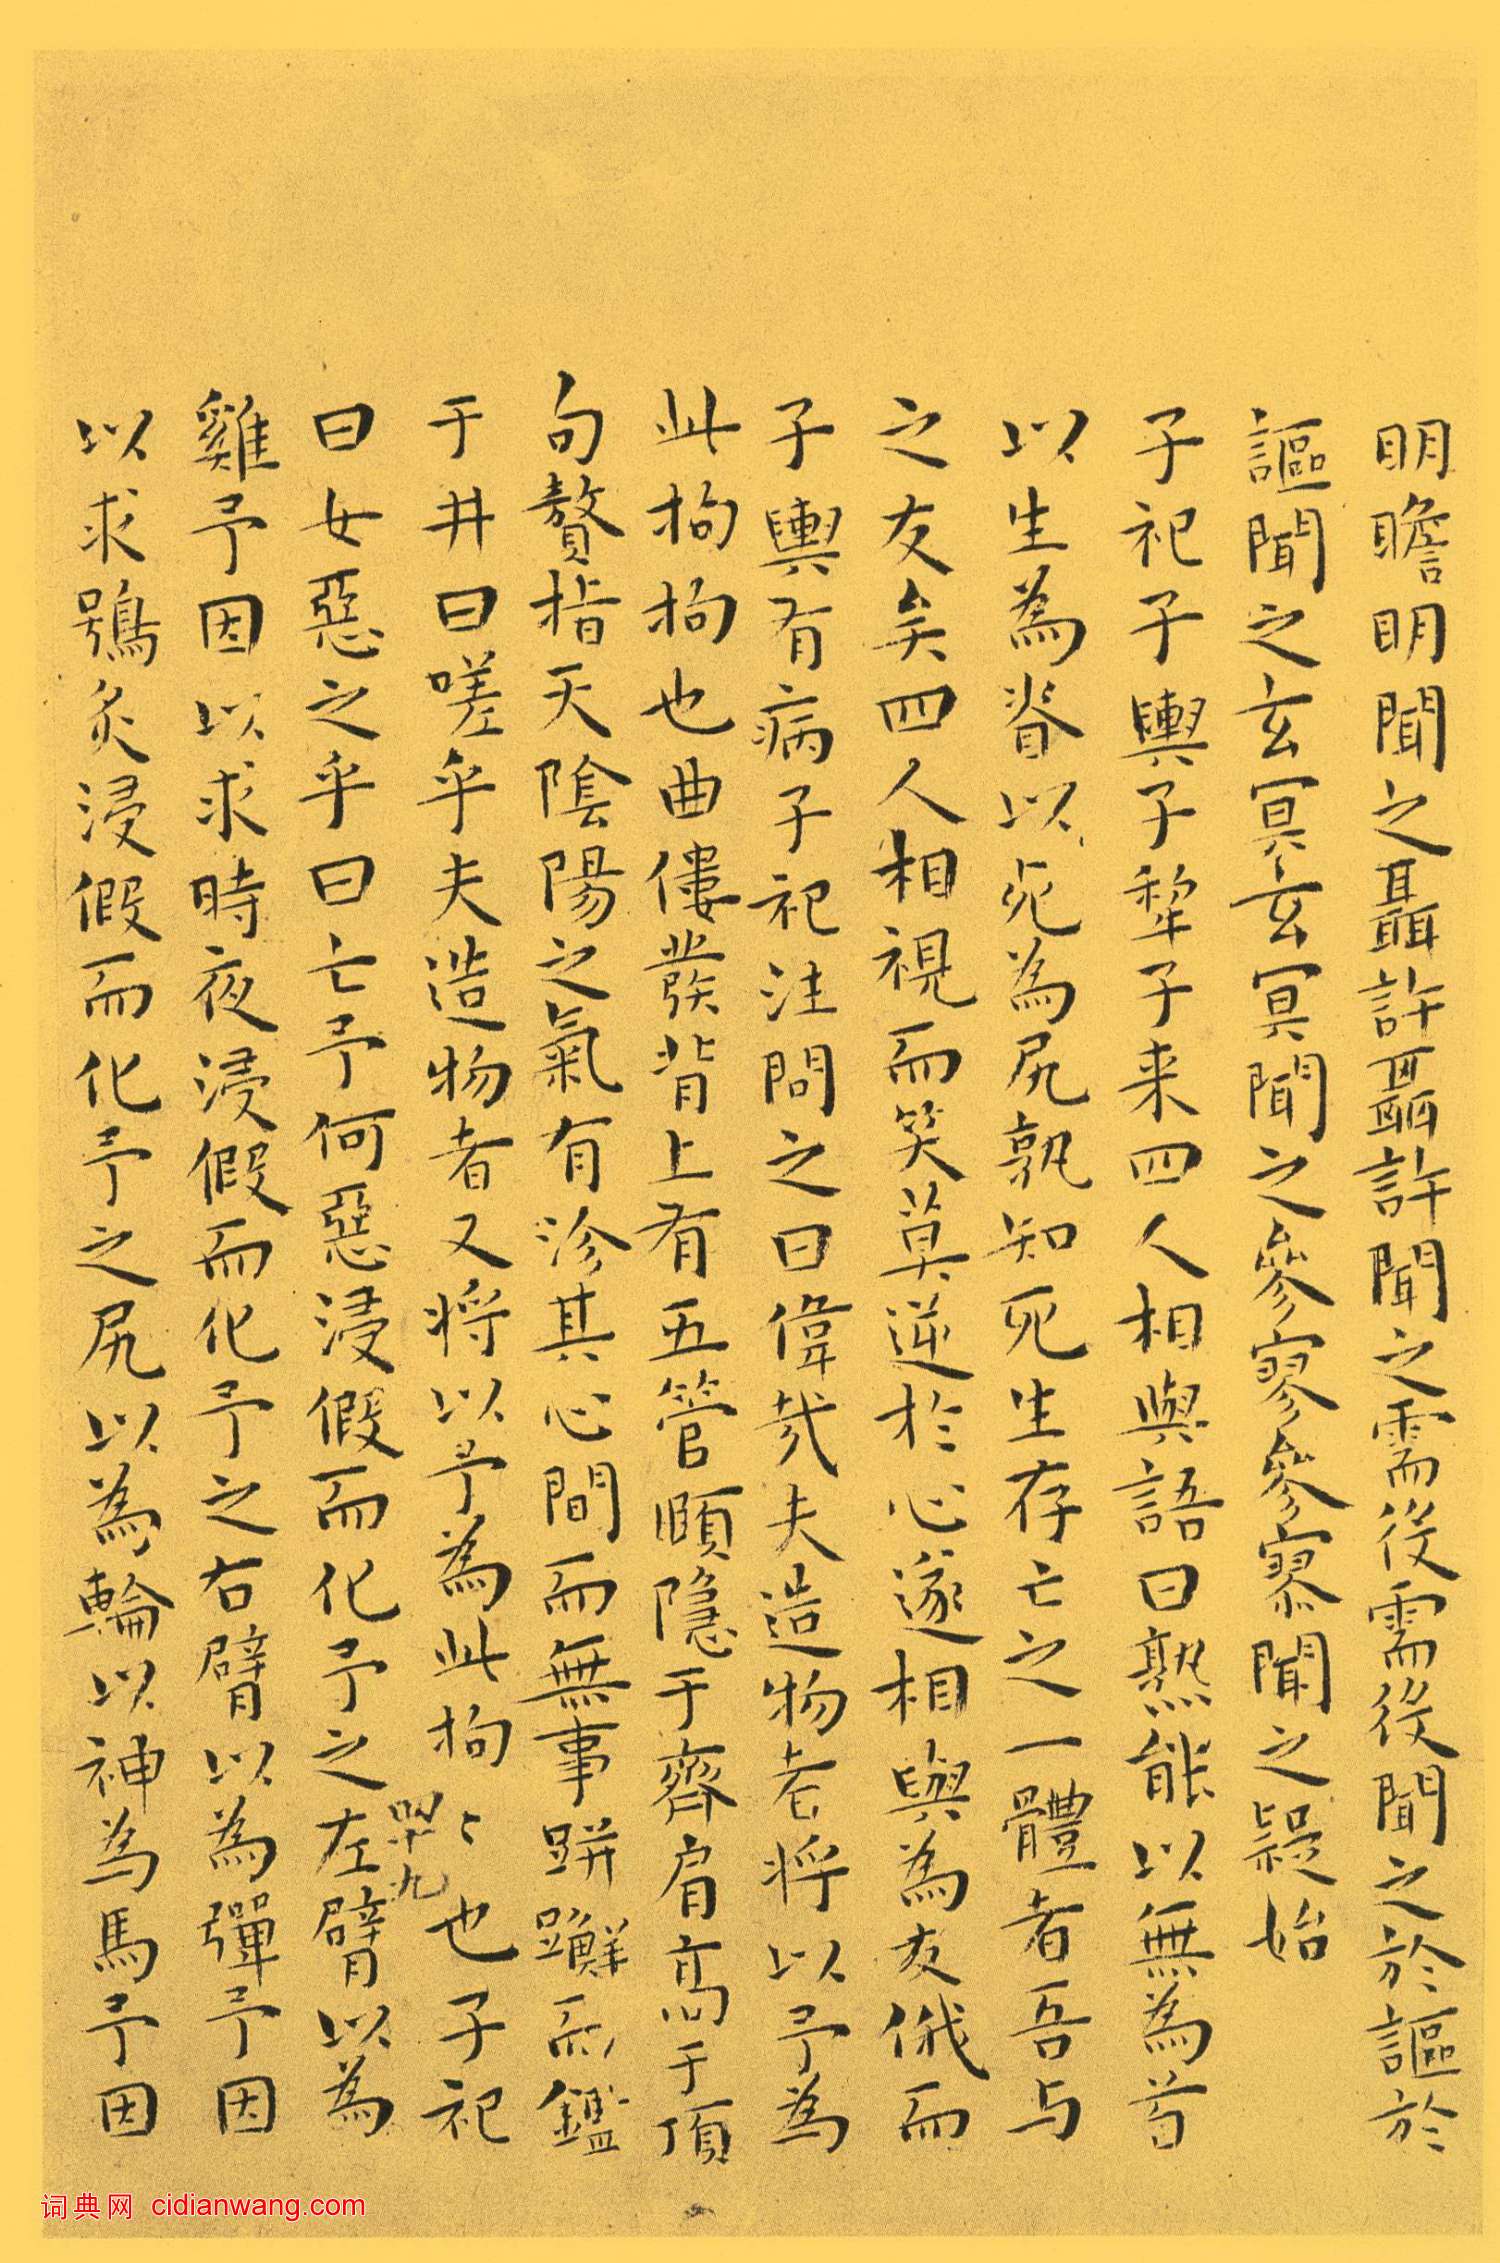 明瞻明聞之聶許聶許聞之需役需役聞之於謳於
謳聞之玄冥玄冥聞之參寥參寥聞之疑始
子祀子輿子犂子来四人相與語曰熟能以無為首
以生為脊以死為尻孰知死生存亡之一體者吾与
之友矣四人相視而笑莫逆於心遂相與為友俄而
子輿有病子祀注問之曰偉哉夫造物者将以予為
此拘拘也曲僂發背上有五管頤隐于齊肩高于頂
句贅指天陰陽之氣有沴其心間而無事跰𨇤而鑑
于井曰嗟乎夫造物者又将以予為此拘〻也子祀
四十九
曰女惡之乎曰亡予何惡浸假而化予之左臂以為
雞予因以求時夜浸假而化予之右臂以為彈予因
以求鴞炙浸假而化予之尻以為輪以神為馬予因
词典网 cidianwang.com